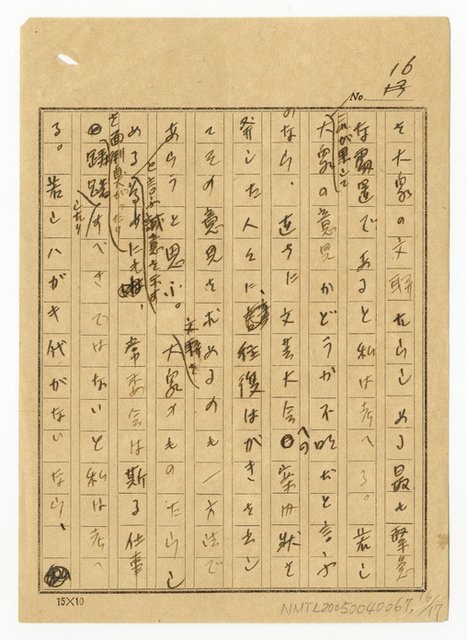 16
No.
を大衆の文聯たらしめる最も緊急
な問題であると私は考へる。若し
これが果して
大衆の意見かどうか不明だと言ふ
のなら、直ちに文芸大会への案内状を
発した人々に、往復はがきを出し
てその意見を求めるのも一方法で
あらうと思ふ。
文聯を
大衆のものたらし
と言ふ誠意を示す
めるために
常委会は斯る仕事
を面倒臭がったり
躊躇
したり
すべきではないと私は考へ
る。若しハガキ代がないなら、
15×10
NMTL20050040067, 16/17